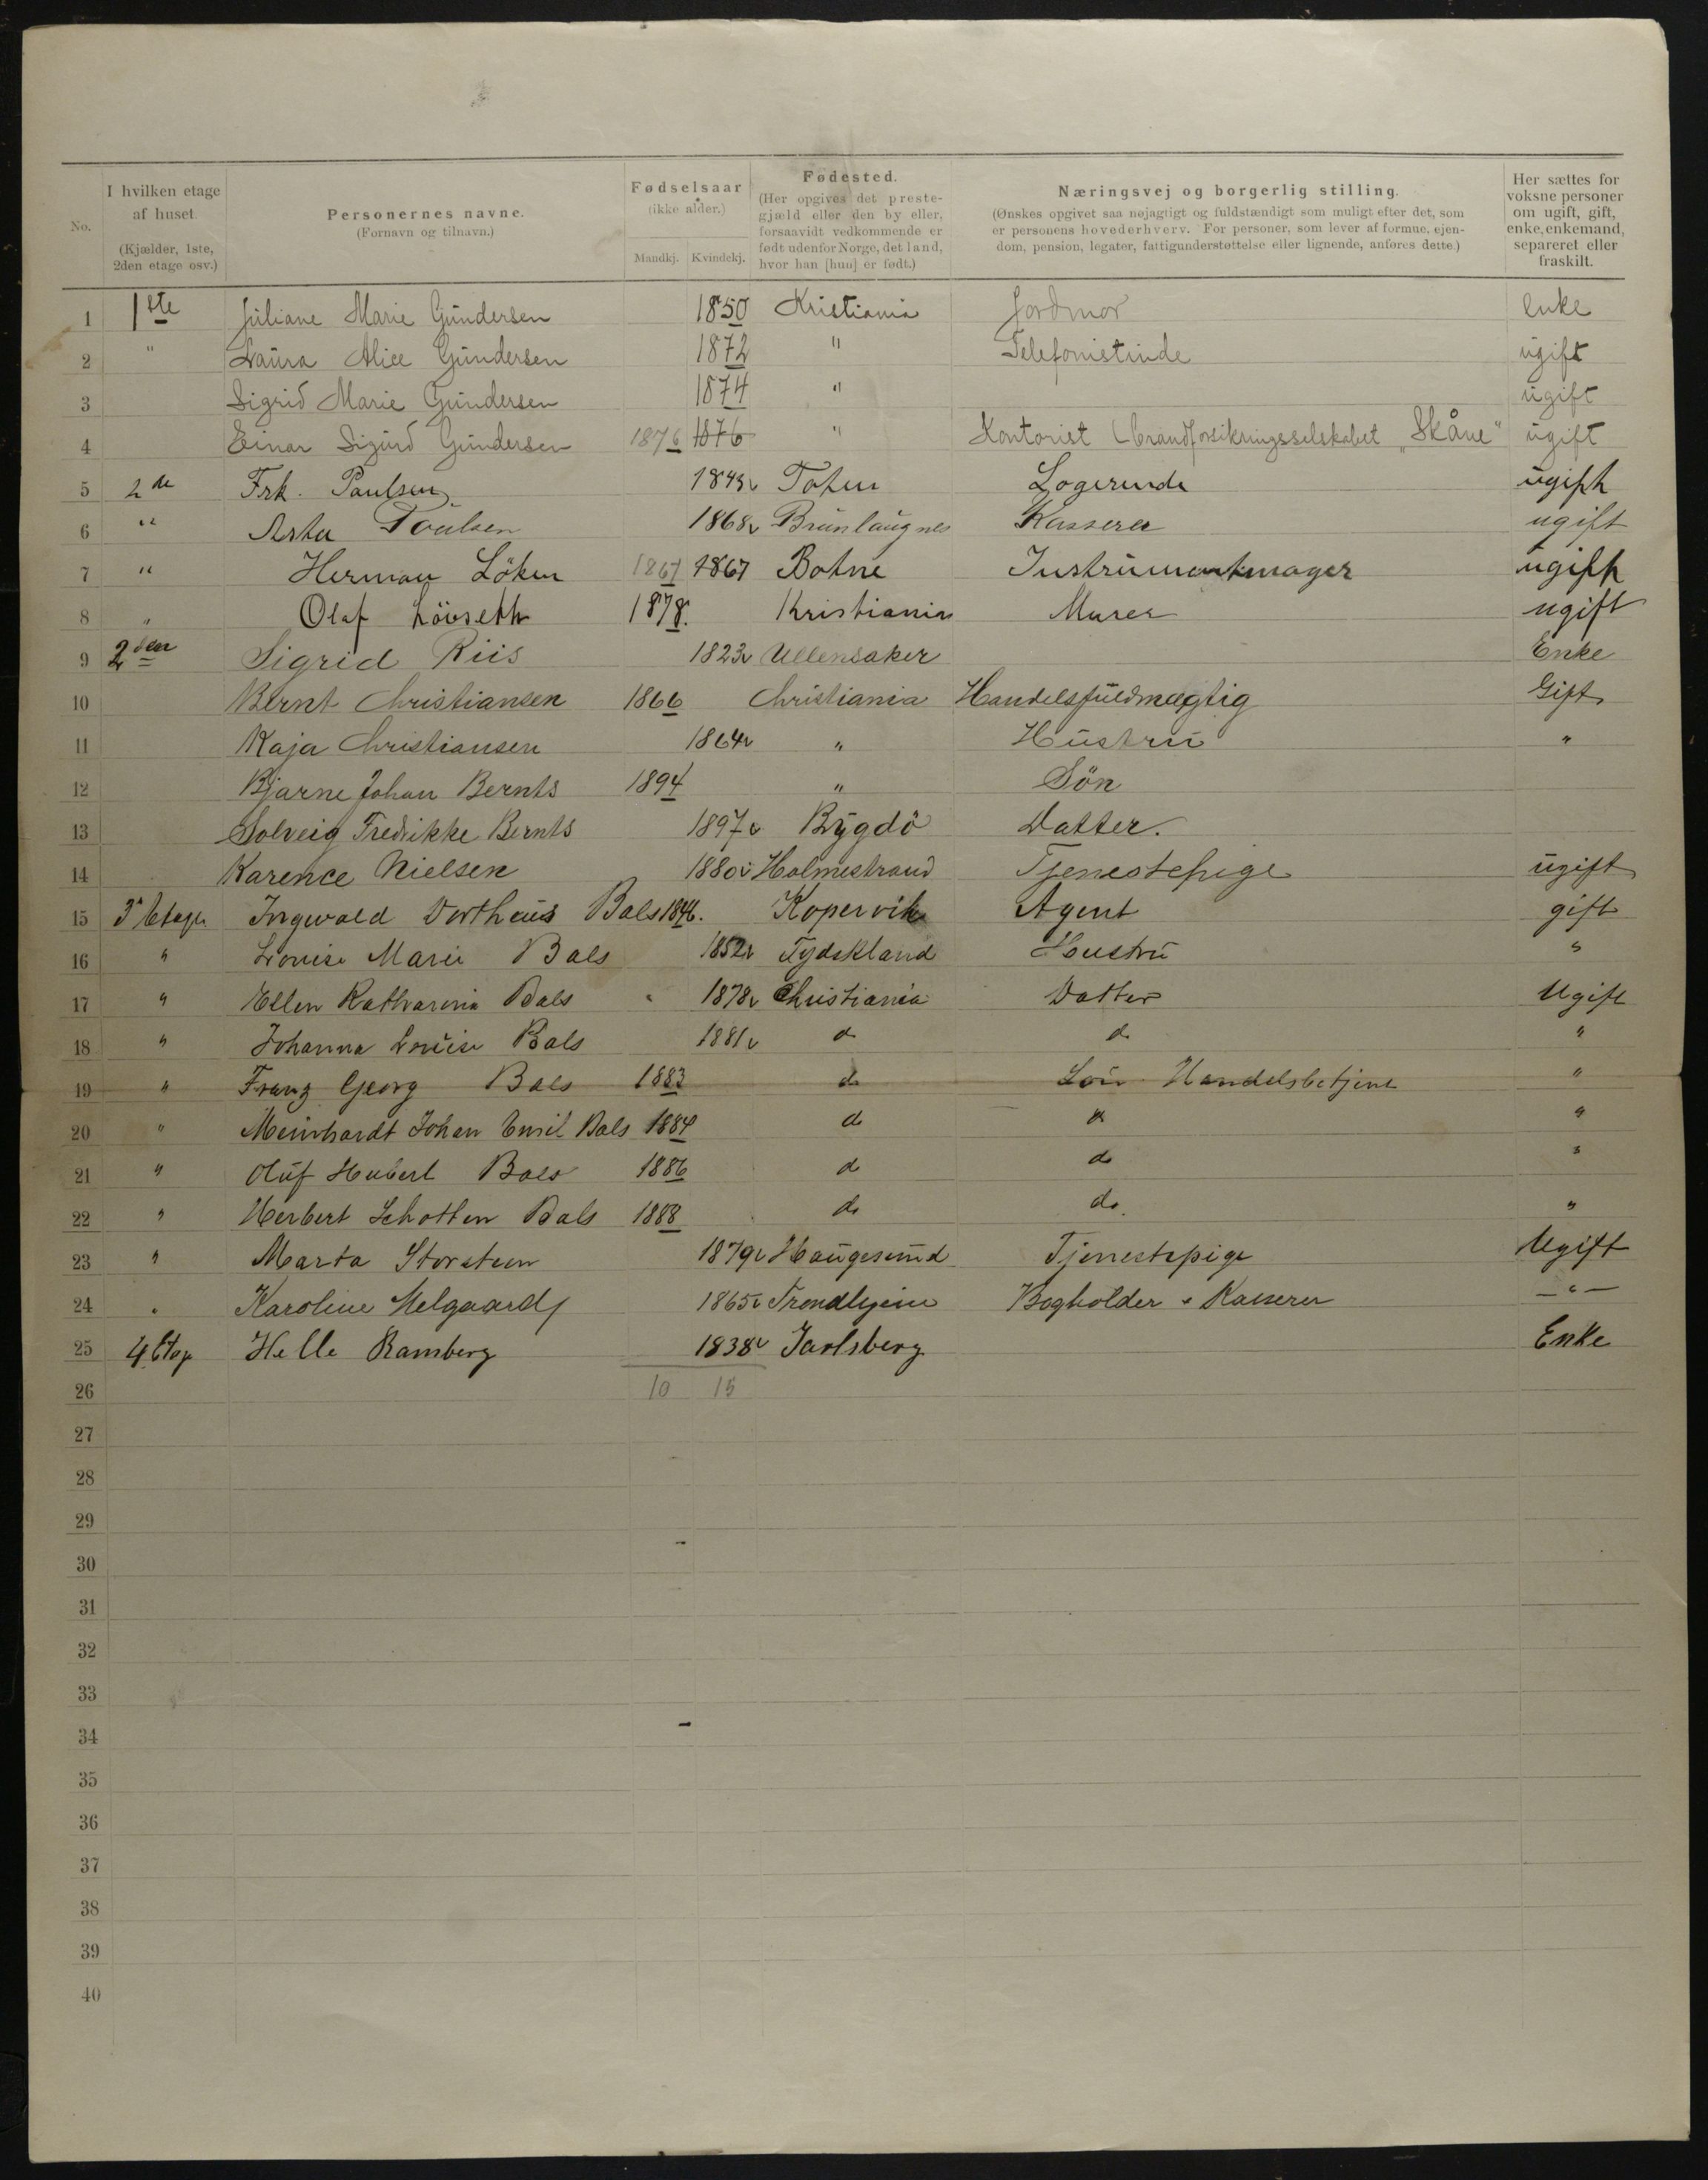 No. | I hvilken etage af huset. (Kjælder, 1ste, 2den etage osv.) | Personernes navne. (Fornavn og tilnavn.) | Fødselsaar (ikke alder.) Mandkj. Kvindekj. | Fødested. (Her opgives det prestegjæld eller den by eller, forsaavidt vedkommende er født udenfor Norge, det land, hvor han [hun] er født.) | Næringsvej og borgerlig stilling. (Ønskes opgivet saa nøjagtigt og fuldstændigt som muligt efter det, som er personens hovederhverv. For personer, som lever af formue, ejendom, pension, legater, fattigunderstøttelse eller lignende, anføres dette.) | Her sættes for voksne personer om ugift, gift, enke, enkemand, separeret eller fraskilt.
1 1ste Juliane Marie Gundersen 1850 Kristiania Jordmor enke
2 " Laura Alice Gundersen 1872 " Telefonistinde ugift
3 Sigrid Marie Gundersen 1874 " ugift
4 Einar Sigurd Gundersen 1876 1876 " Kontorist (brandforsikringsselskabet „Skåne" ugift
5 2de Frk. Paulsen 1843 Toten Logerende ugift
6 " Asta Poulsen 1868 Brunlaugnes Kasserer ugift
7 " Herman Löken 1867 1867 Botne Instrumentmager ugift
8 " Olaf Lövseth 1878. Kristiania Murer ugift
9 2den Sigrid Riis 1823 Ullensaker Enke
10 Bernt Christiansen 1866 Christiania Handelsfuldmægtig Gift
11 Kaja Christiansen 1864 " Hustru "
12 Bjarne Johan Bernts 1894 " Sön
13 Solveig Fredrikke Bernts 1897 Bygdö Datter.
14 Karence Nielsen 1880 Holmestrand Tjenestepige ugift
15 3 Etage Ingwald Dortheus Bals 1846. Kopervik Agent gift
16 " Louise Marie Bals 1852 Tydskland Hustru "
17 " Ellen Katharina Bals 1878 Christiania Datter Ugift
18 " Johanna Louise Bals 1881 d d "
19 " Franz Georg Bals 1883 d Sön Handelsbetjent "
20 " Meinhardt Johan Emil Bals 1884 d d "
21 " Oluf Hubert Bals 1886 d do "
22 " Herbert Schotten Bals 1888 do do. "
23 " Marta Storsteen 1879 Haugesund Tjenestepige Ugift
24 " Karoline Melgaard 1865 Trondhjem Bogholder & Kasserer — " —
25 4 Etag Helle Ramberg 1838 Jarlsberg Enke
26 10 15
27
28
29
30
31
32
33
34
35
36
37
38
39
40